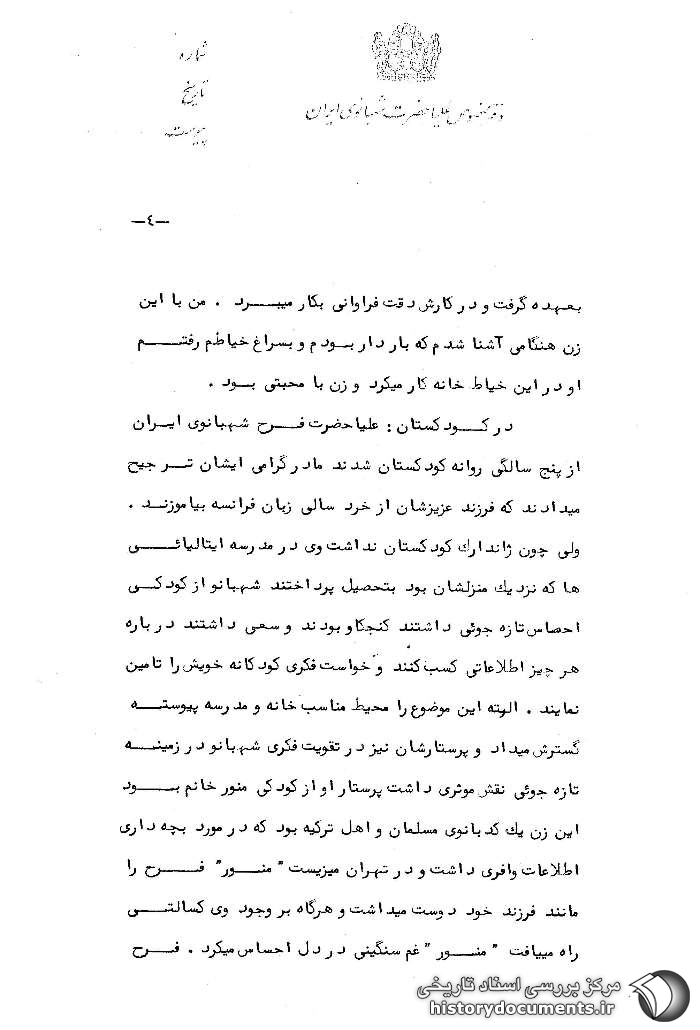 شماره
تاریخ
پیوست
دفتر مخصوص علیاحضرت شهبانوی ایران
—٤—
بعهده گرفت و در کارش دقت فراوانی بکار میبـــرد . من با این
زن هنگامی آشنا شدم که باردار بـودم و بسراغ خیاطم رفتـــم
او در این خیاط خانه کار میکرد و زن با محبتی بـود .
در کـــودکستان : علیاحضرت فـــرح شهبانوی ایـران
از پنج سالگی روانه کودکستان شدند مادر گرامی ایشان تـرجیح
میدادند که فرزند عزیزشان از خرد سالی زبان فرانسه بیاموزنـد .
ولی چون ژاندارك کودکستان نداشت وی در مدرسه ایتالیائـــی
ها که نزدیك منزلشان بود بتحصیل پرداختند شهبانو از کودکـی
احصاس تازه جوئی داشتند کنجکاو بودند و سعی داشتند درباره
هر چیز اطلاعاتی کسب کنند و خواست فکری کودکانه خویش را تامین
نمایند . البته این موضوع را محیط مناسب خانه و مدرسه پیوستـه
گسترش میداد و پرستارشان نیز در تقویت فکری شهبانو در زمینـه
تازه جوئی نقش موثری داشت پرستار او از کودکی منور خانم بـــود
این زن یك کدبانوی مسلمان و اهل ترکیه بود که در مورد بچه داری
اطلاعات وافری داشت و در تهران میزیست " منـــور " فـــرح را
مانند فرزند خود دوست میداشت و هرگاه بر وجود وی کسالتـــی
راه مییافت " منـــور " غم سنگینی در دل احساس میکرد . فـــرح
مرکز بررسی اسناد تاریخی
historydocuments.ir